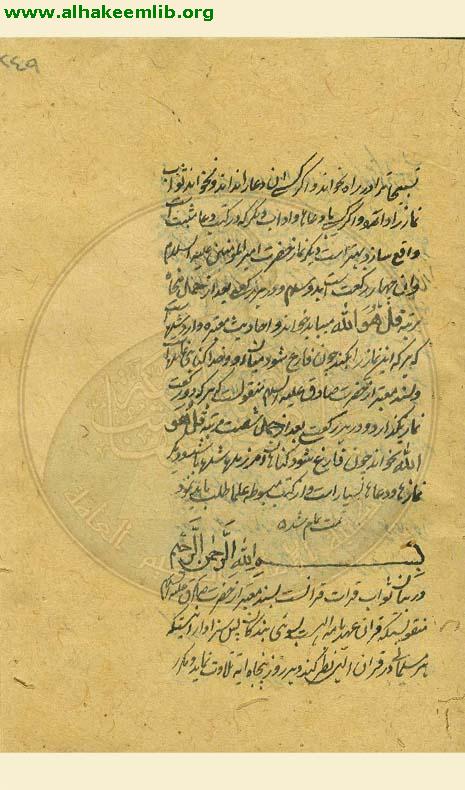 www.alhakeemlib.org
٢٤٩
تسبیحات را در راه بخواند و اگر کسی این دعا را نداند و نخواند ثواب
نماز را دارد و اگر کسی با دعاها و آداب دیگر که در کتب دعا ثبت است
واقع سازد بهتر است دیگر نماز حضرت امیر المؤمنین علیه السلام
و آن چهار رکعت است بدو سلام و در هر رکعت بعد از حمد پنجاه
مرتبه قل هو الله میباید خواند و احادیث معتبره وارد شده است
که هر که این نماز را بکند چون فارغ شود میان او و خدا گناهی نماند
و بسند معتبر از حضرت صادق علیه السلام منقولست که هر که دو رکعت
نماز بگذارد و در هر رکعت بعد از حمد شصت مرتبه قل هو
الله بخواند چون فارغ شود گناهان آمرزیده شده باشد و دیگر
نمازها و دعاها بسیار است و از کتب مبسوطه علما طلب باید نمود
تمت تمام شد
بسم الله الرحمن الرحیم
در بیان ثواب قرائت قرآنست بسند معتبر از حضرت صادق علیه السلام
منقولست که قرآن عهدنامه الهی است بسوی بندگان پس سزاوار آنست که
هر مسلمانی در قرآن الهی نظر کند و هر روز پنجاه آیه تلاوت نماید و مکرر